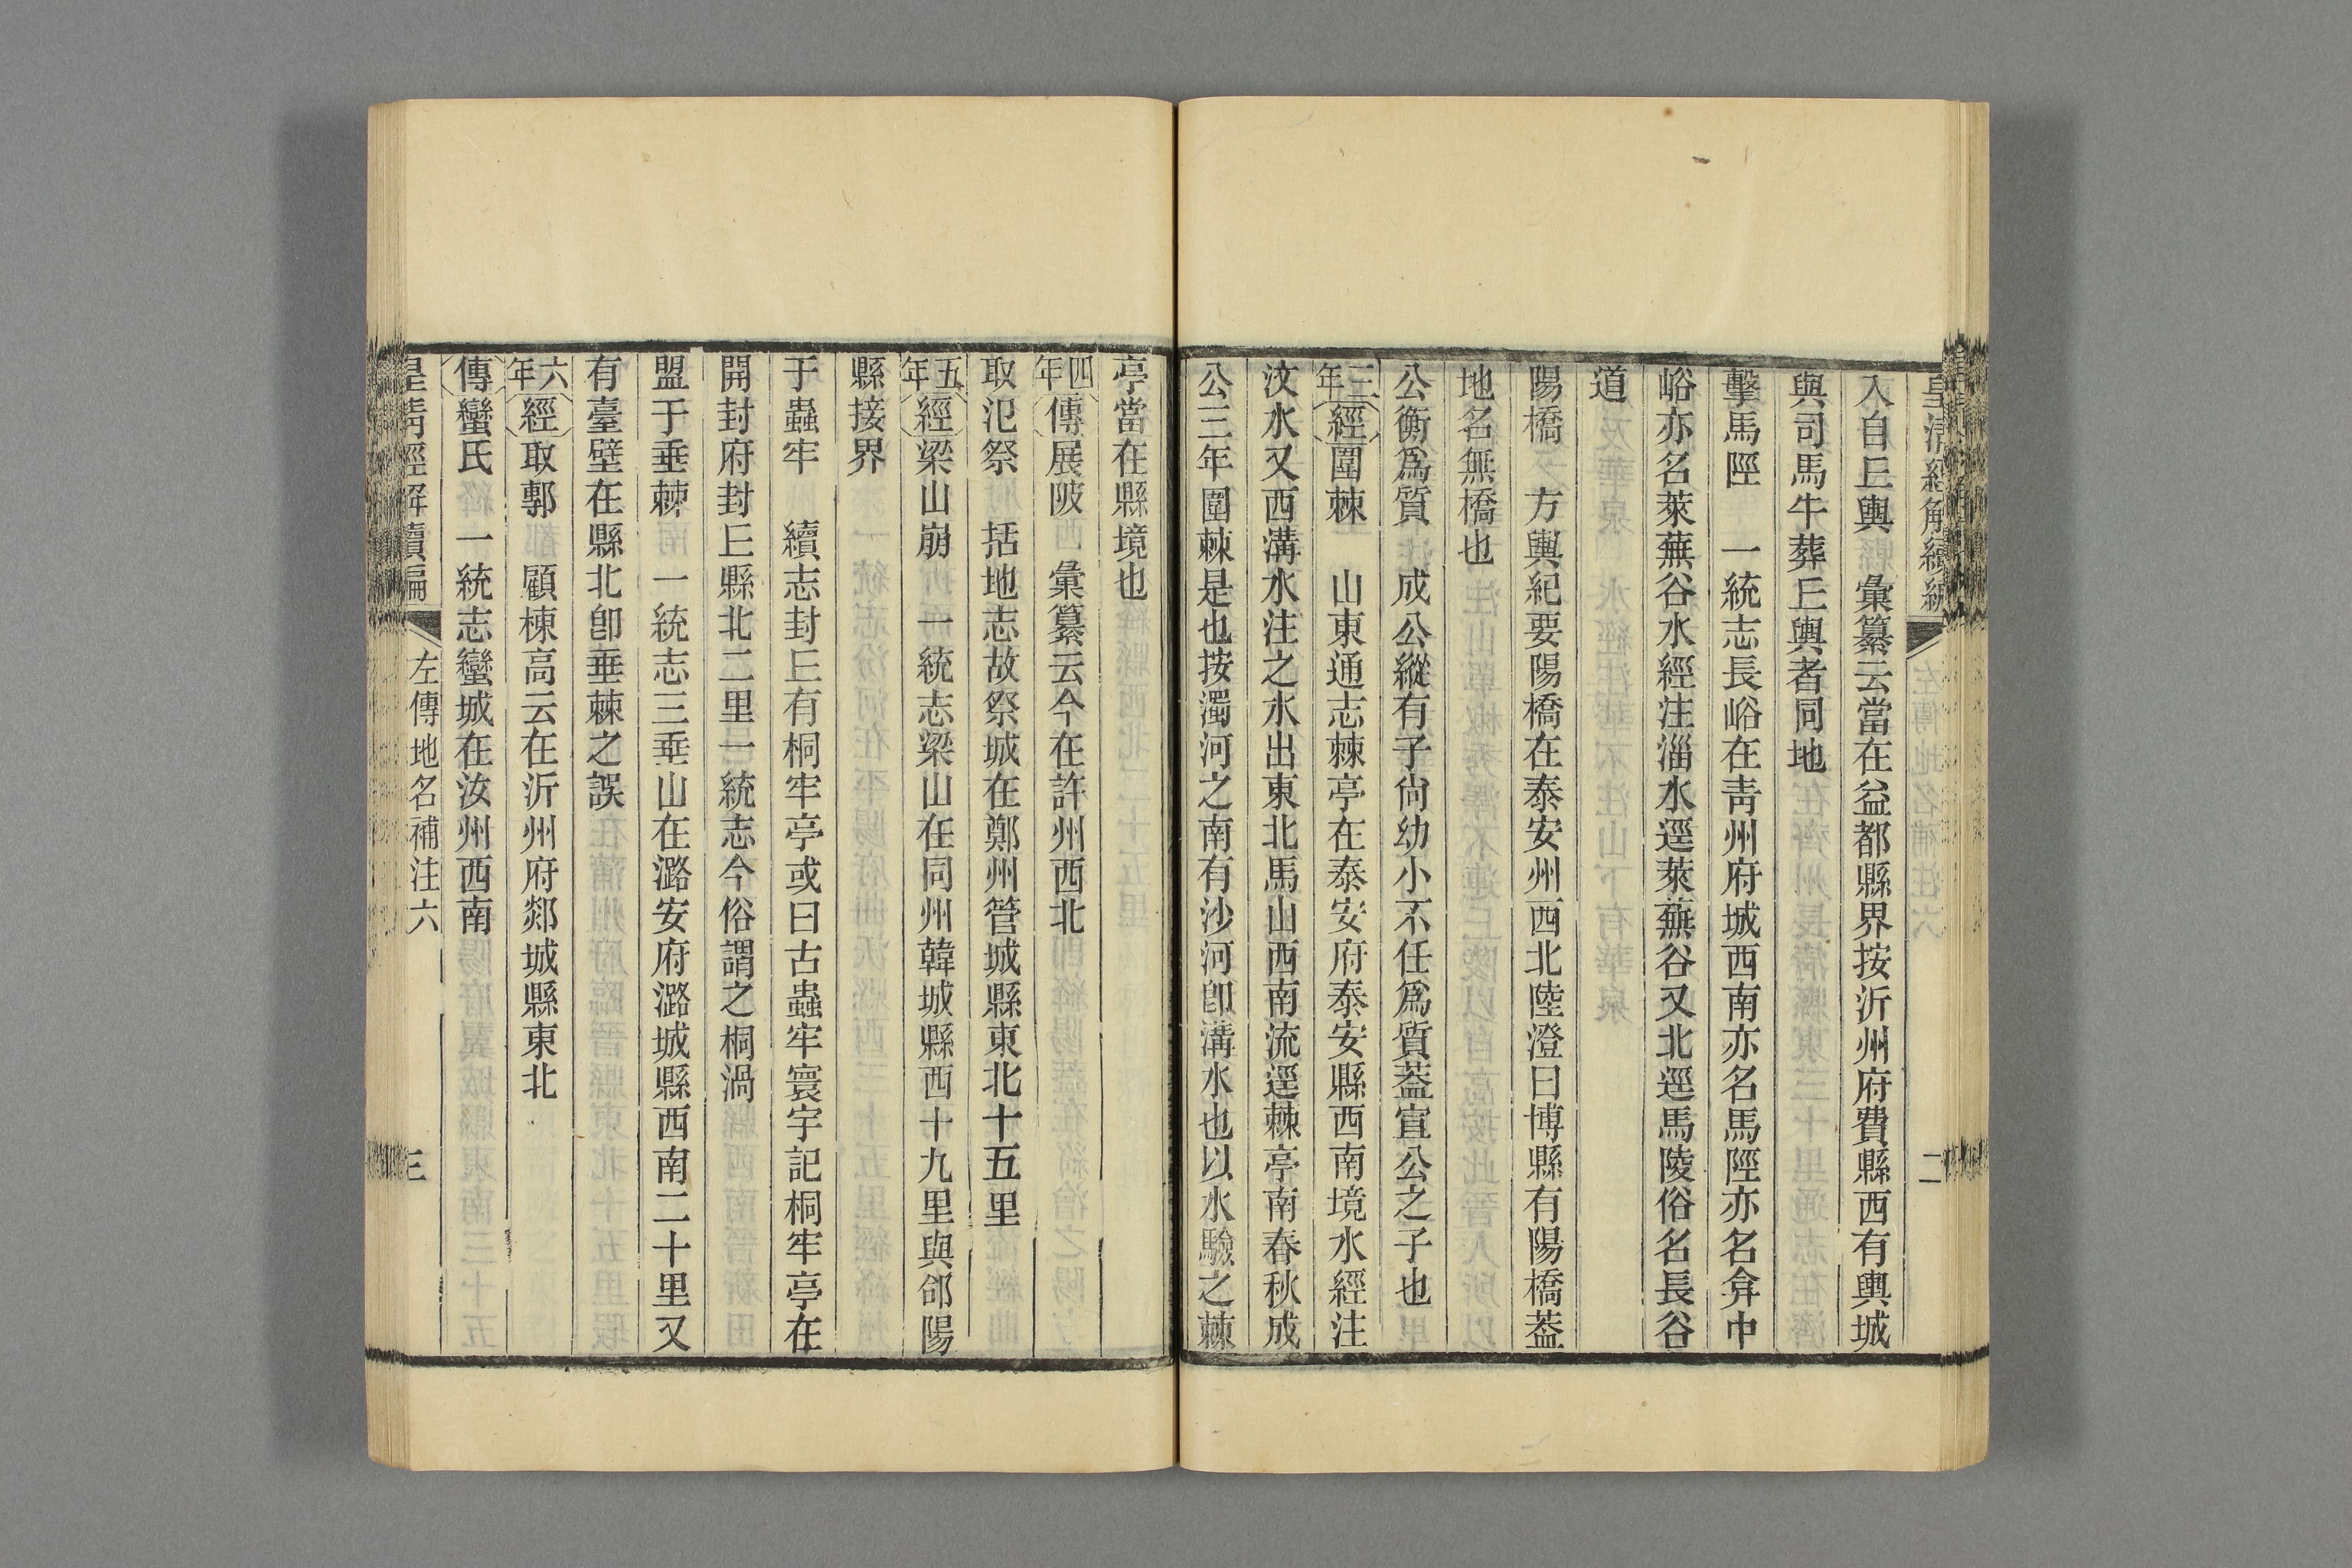 皇淸經解續編
二
入自丘輿　彙纂云當在益都縣界按沂州府費縣西有輿城
與司馬牛葬丘輿者同地
擊馬陘　一統志長峪在靑州府城西南亦名馬陘亦名弇中
峪亦名萊蕪谷水經注淄水逕萊蕪谷又北逕馬陵俗名長谷
道
陽橋　方輿紀要陽橋在泰安州西北陸澄曰博縣有陽橋葢
地名無橋也
公衡爲質　成公縱有子尙幼小不任爲質葢宣公之子也
三年經圍棘　山東通志棘亭在泰安府泰安縣西南境水經注
汶水又西溝水注之水出東北馬山西南流逕棘亭南春秋成
公三年圍棘是也按濁河之南有沙河卽溝水也以水驗之棘
亭當在縣境也
四年傳展陂　彙纂云今在許州西北
取氾祭　括地志故祭城在鄭州管城縣東北十五里
五年經梁山崩　一統志梁山在同州韓城縣西十九里與郃陽
縣接界
于蟲牢　續志封丘有桐牢亭或曰古蟲牢寰宇記桐牢亭在
開封府封丘縣北二里一統志今俗謂之桐渦
盟于垂棘　一統志三垂山在潞安府潞城縣西南二十里又
有臺壁在縣北卽垂棘之誤
六年經取鄟　顧棟高云在沂州府郯城縣東北
傳蠻氏　一統志蠻城在汝州西南
皇淸經解續編
左傳地名補注六
三